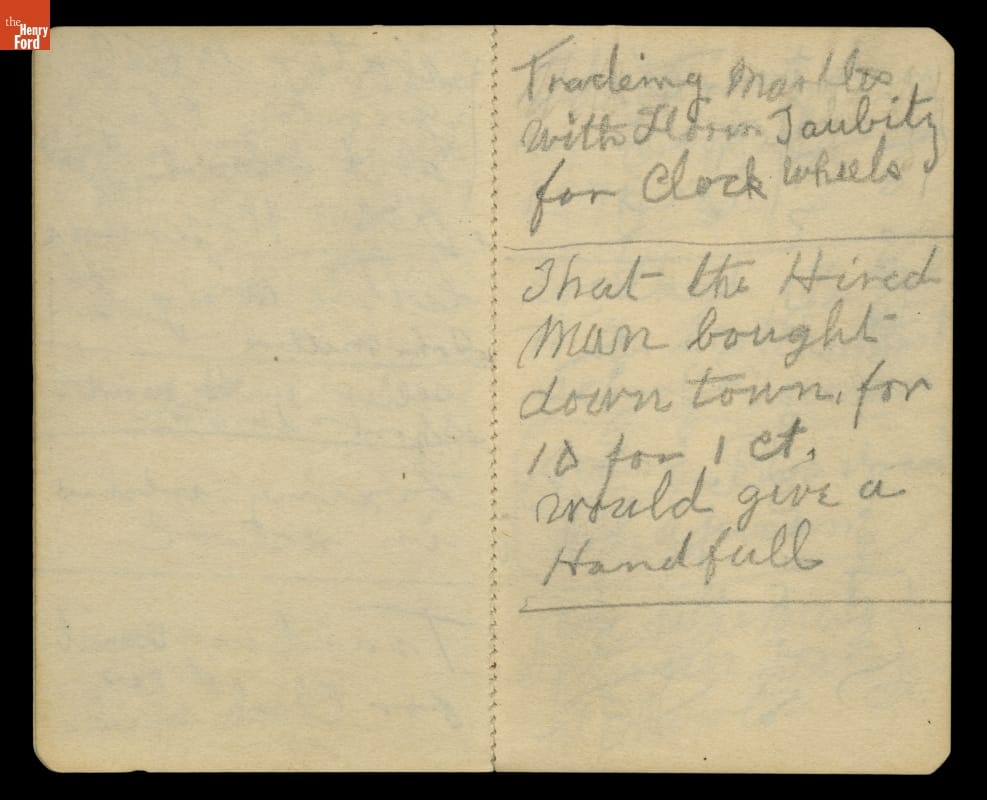 the
Henry
Ford
Tradeing Marbles
with Floren Taubitz
for Clock wheels
That the Hired
Man bought
down town, for
10 for 1 ct,
would give a
Handfull